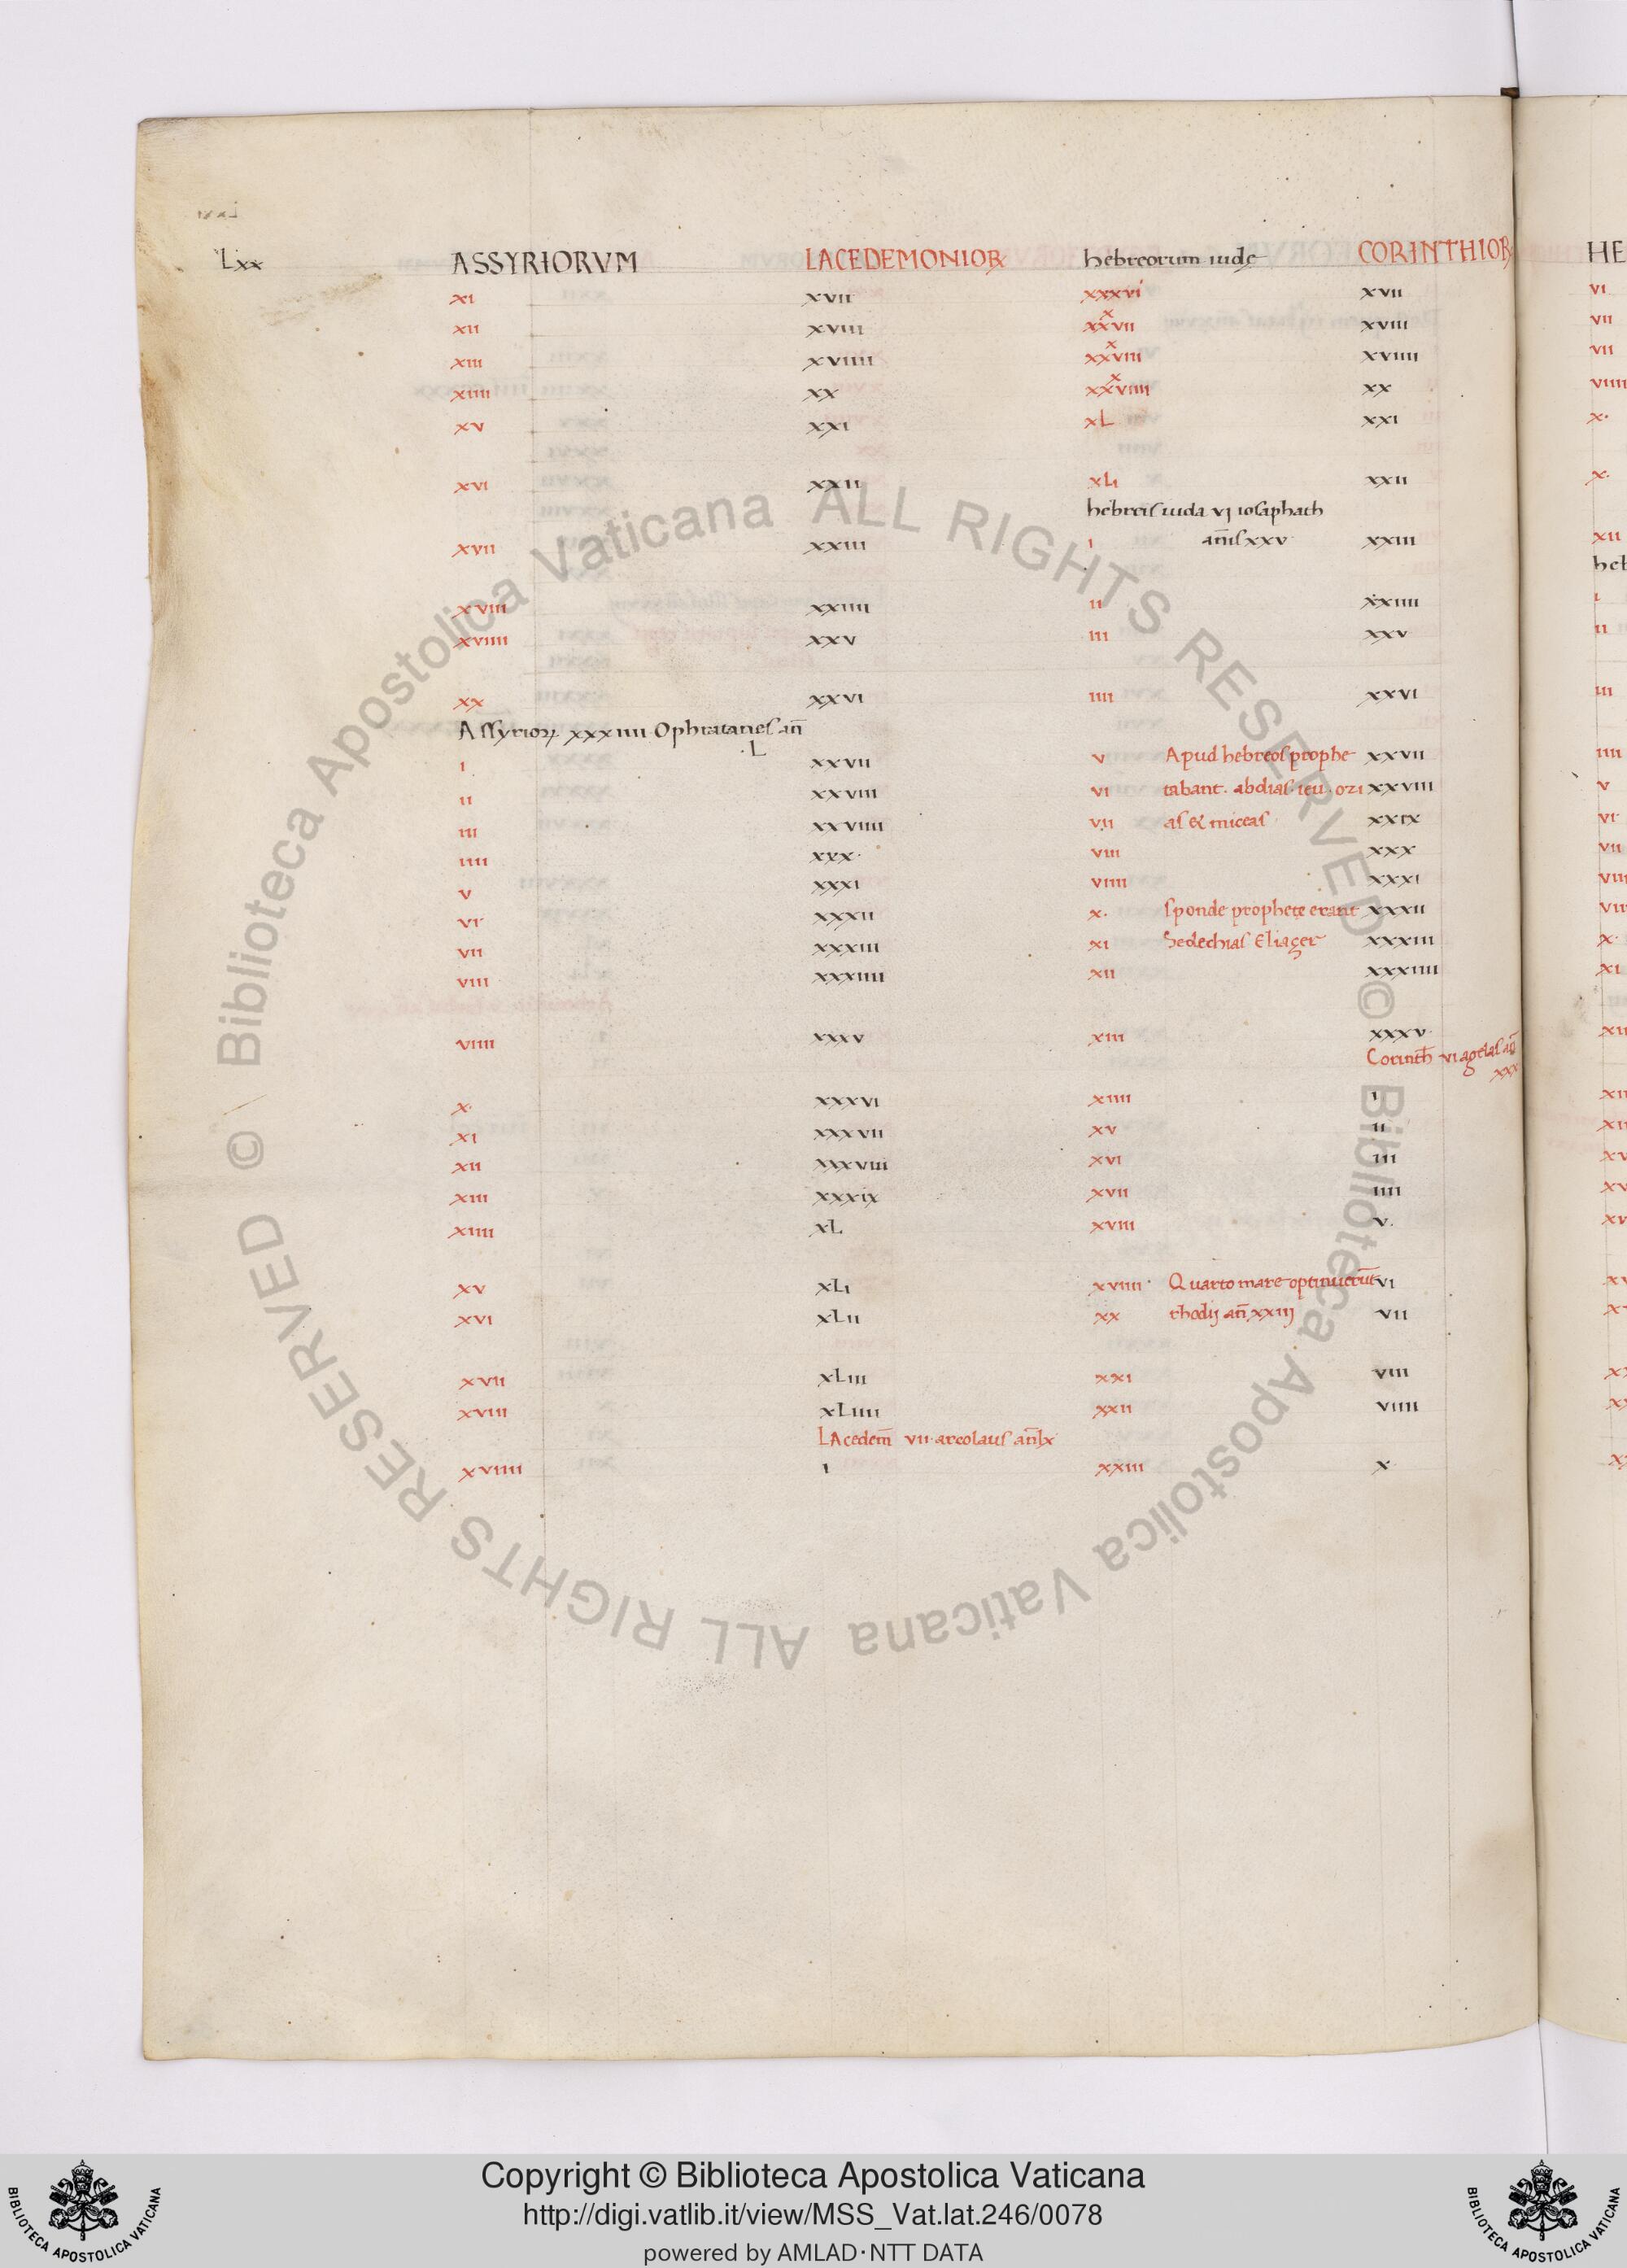 Lxx ASSYRIORVM LACEDEMONIOR hebreorum iudę CORINTHIOR HE
xi xvii xxxvi xvii vi
xii xviii xxxvii xviii vii
xiii xviiii xxxviii xviiii vii
xiiii xx xxxviiii xx viiii
xv xxi xL xxi x.
xvi xxii xLi xxii x.
hebreis iuda vj iosaphath
xvii xxiii i ann̄is xxv xxiii xii
heb
xviii xxiiii ii xxiiii i
xviiii xxv iii xxv ii
xx xxvi iiii xxvi iii
Assyrioꝝ xxxiiii Ophratanes an̄
.L
i xxvii v Apud hebreos prophe xxvii iiii
ii xxviii vi tabant. abdias. ieu. ozi xxviii v
iii xxviiii vii as & miceas xxix vi
iiii xxx. viii xxx vii
v xxxi viiii xxxi viii
vi xxxii x. sponde prophetę erant xxxii viii
vii xxxiii xi Sedechias Eliazer xxxiii x
viii xxxiiii xii xxxiiii xi
viiii xxxv xiii xxxv xii
Corinth̄ vi agelas an̄
xxx
x. xxxvi xiiii i xii
xi xxxvii xv ii xii
xii xxxviii xvi iii xv
xiii xxxix xvii iiii xv
xiiii xL xviii v. xv
xv xLi xviiii Quarto mare optinuerūt vi xv
xvi xLii xx rhodij an̄ xxiij vii x
xvii xLiii xxi viii xx
xviii xLiiii xxii viiii xx
LAcedem̄ vii. arcolaus an̄ lx
xviiii i xxiii x xx
© Biblioteca Apostolica Vaticana ALL RIGHTS RESERVED © Biblioteca Apostolica Vaticana ALL RIGHTS RESERVED
Copyright © Biblioteca Apostolica Vaticana
http://digi.vatlib.it/view/MSS_Vat.lat.246/0078
powered by AMLAD·NTT DATA
BIBLIOTECA APOSTOLICA VATICANA
BIBLIOTECA APOSTOLICA VATICANA